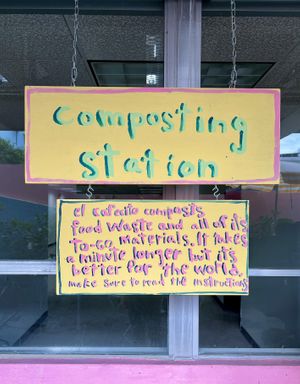 composting
station
el cafecito composts
food waste and all of its
to-go materials. It takes
a minute longer but its
better for the world.
make sure to read the instructions